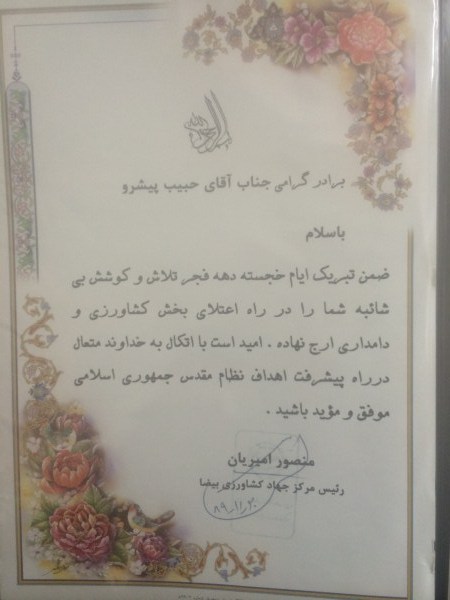 برادر گرامی جناب آقای حبیب پیشرو
باسلام
ضمن تبریک ایام خجسته دهه فجر تلاش و کوشش بی
شائبه شما را در راه اعتلای بخش کشاورزی و
دامداری ارج نهاده . امید است با اتکال به خداوند متعال
درراه پیشرفت اهداف نظام مقدس جمهوری اسلامی
موفق و مؤید باشید .
منصور امیریان
رئیس مرکز جهاد کشاورزی بیضا